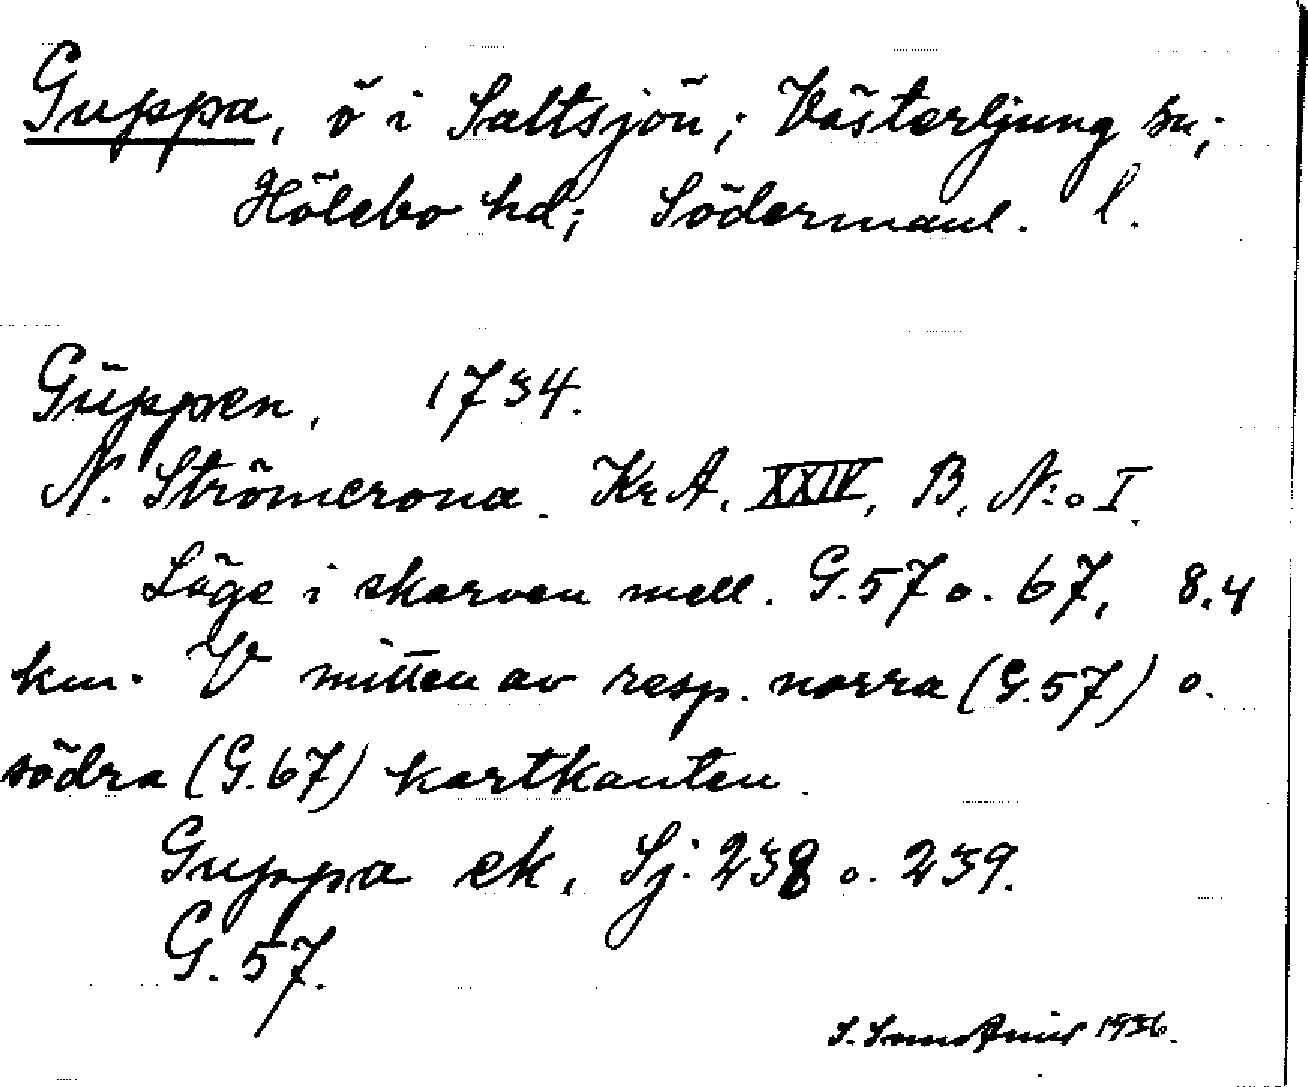 Guppa, ö i Saltsjön; Västerljung sn;
Hölebo hd; Södermanl. l.
Güppen, 1734.
N. Strömcrona. Kr A. XXIV, B, N:o I.
Läge i skarven mell. G.57 o. 67, 8.4
km. V mitten av resp. norra (G.57) o.
södra (G.67) kartkanten.
Guppa ek, Sj. 238 o. 239.
G. 57.
S. 1936.